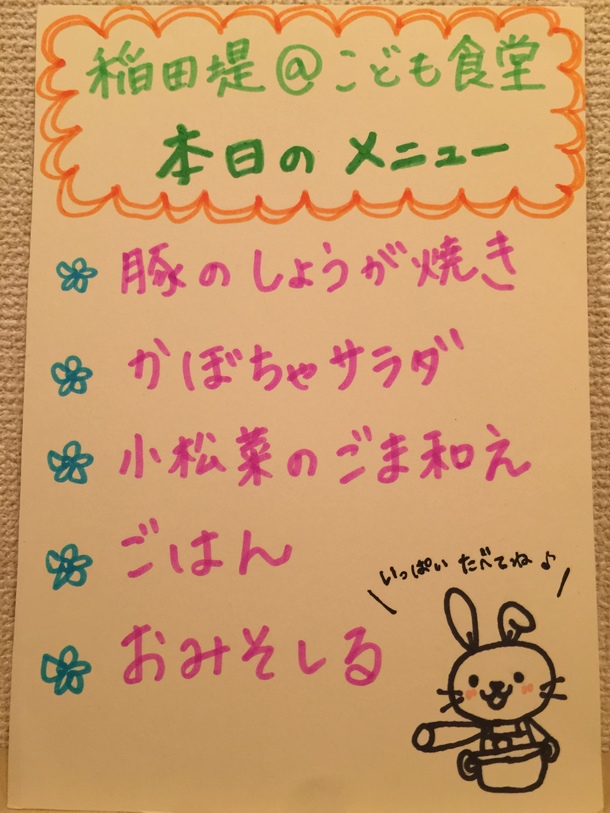 稲田堤@こども食堂
本日のメニュー
豚のしょうが焼き
かぼちゃサラダ
小松菜のごま和え
ごはん
おみそしる
いっぱい たべてね♪